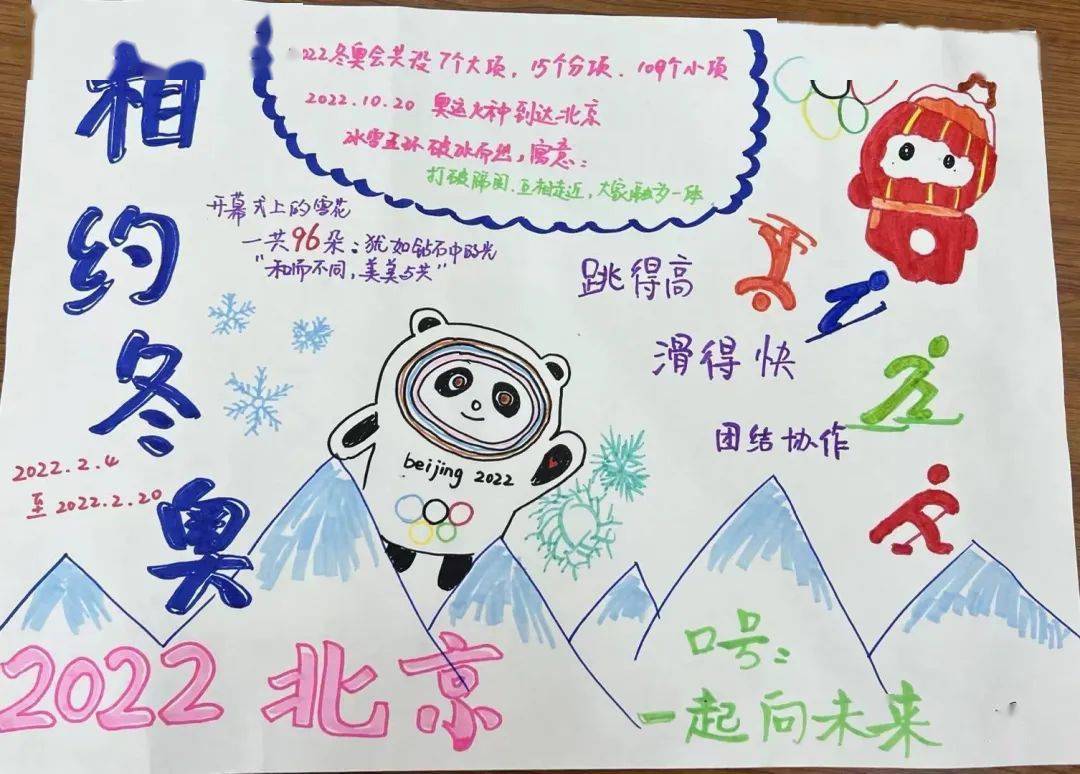 相约冬奥
022冬奥会共设7个大项，15个分项．109个小项
2022.10.20 奥运火种到达北京
冰雪五环破冰而然，寓意：
打破隔阂．互相走近，大家融为一体
开幕式上的雪花
一共96朵：犹如钻石中的光
“和而不同，美美与共”
跳得高
滑得快
团结协作
2022.2.4
至 2022.2.20
beijing 2022
2022 北京
口号：
一起向未来